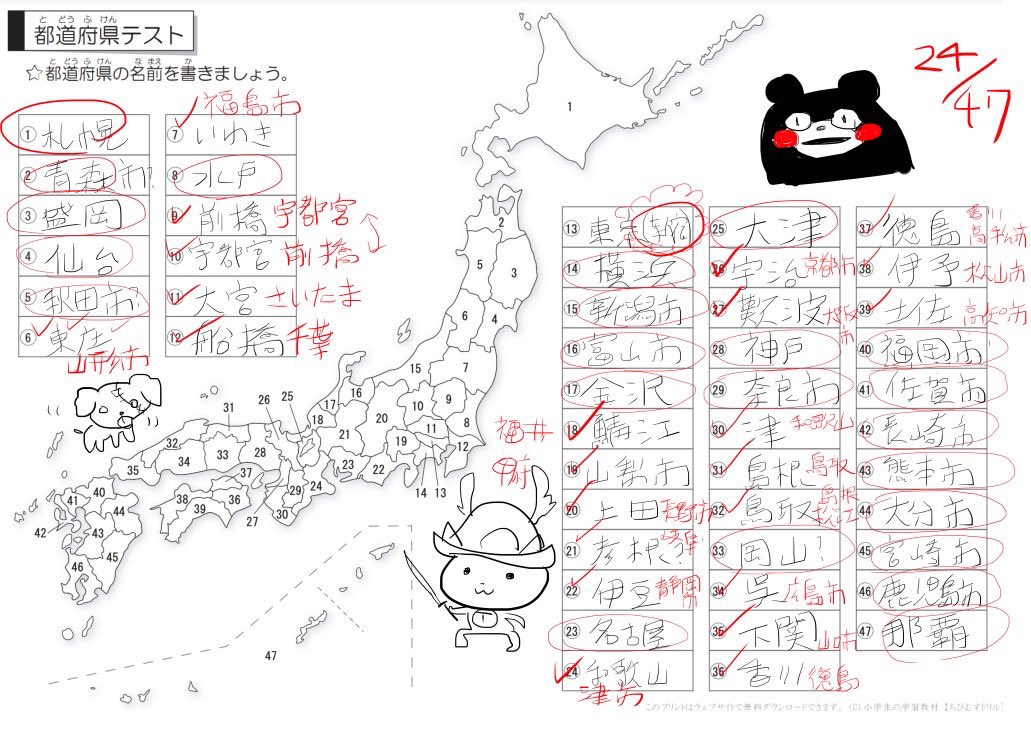 都道府県テスト
☆都道府県の名前を書きましょう。
24/47
① 札幌
② 青森市?
③ 盛岡
④ 仙台
⑤ 秋田市?
⑥ 東庄
山形市
福島市
⑦ いわき
⑧ 水戸
⑨ 前橋 宇都宮
⑩ 宇都宮 前橋
⑪ 大宮 さいたま
⑫ 船橋 千葉
⑬ 東京 新宿
⑭ 横浜
⑮ 新潟市
⑯ 富山市
⑰ 金沢
⑱ 鯖江
福井
⑲ 山梨市
甲府
⑳ 上田 長野市
21 彦根? 岐阜
22 伊豆 静岡市
23 名古屋
24 和歌山
津市
25 大津
26 宇治 京都市
27 難波 大阪市
28 神戸
29 奈良市
30 津 和歌山
31 島根 鳥取
32 鳥取 島根 松江
33 岡山?
34 呉 広島市
35 下関 山口市
36 香川 徳島
37 徳島 香川 高松市
38 伊予 松山市
39 土佐 高知市
40 福岡市
41 佐賀市
42 長崎市
43 熊本市
44 大分市
45 宮崎市
46 鹿児島市
47 那覇
1
2
5 3
6 4
15 7
16 10 9
17 18 20 8
21 19 11 12
23 22 14 13
31 26 25
32 34 33 28
35 37 29 24
38 39 36 27 30
40 41 44
42 43
45
46
47
このプリントはウェブサイトで無料ダウンロードできます。 (C) 小学生の学習教材 【ちびむすドリル】